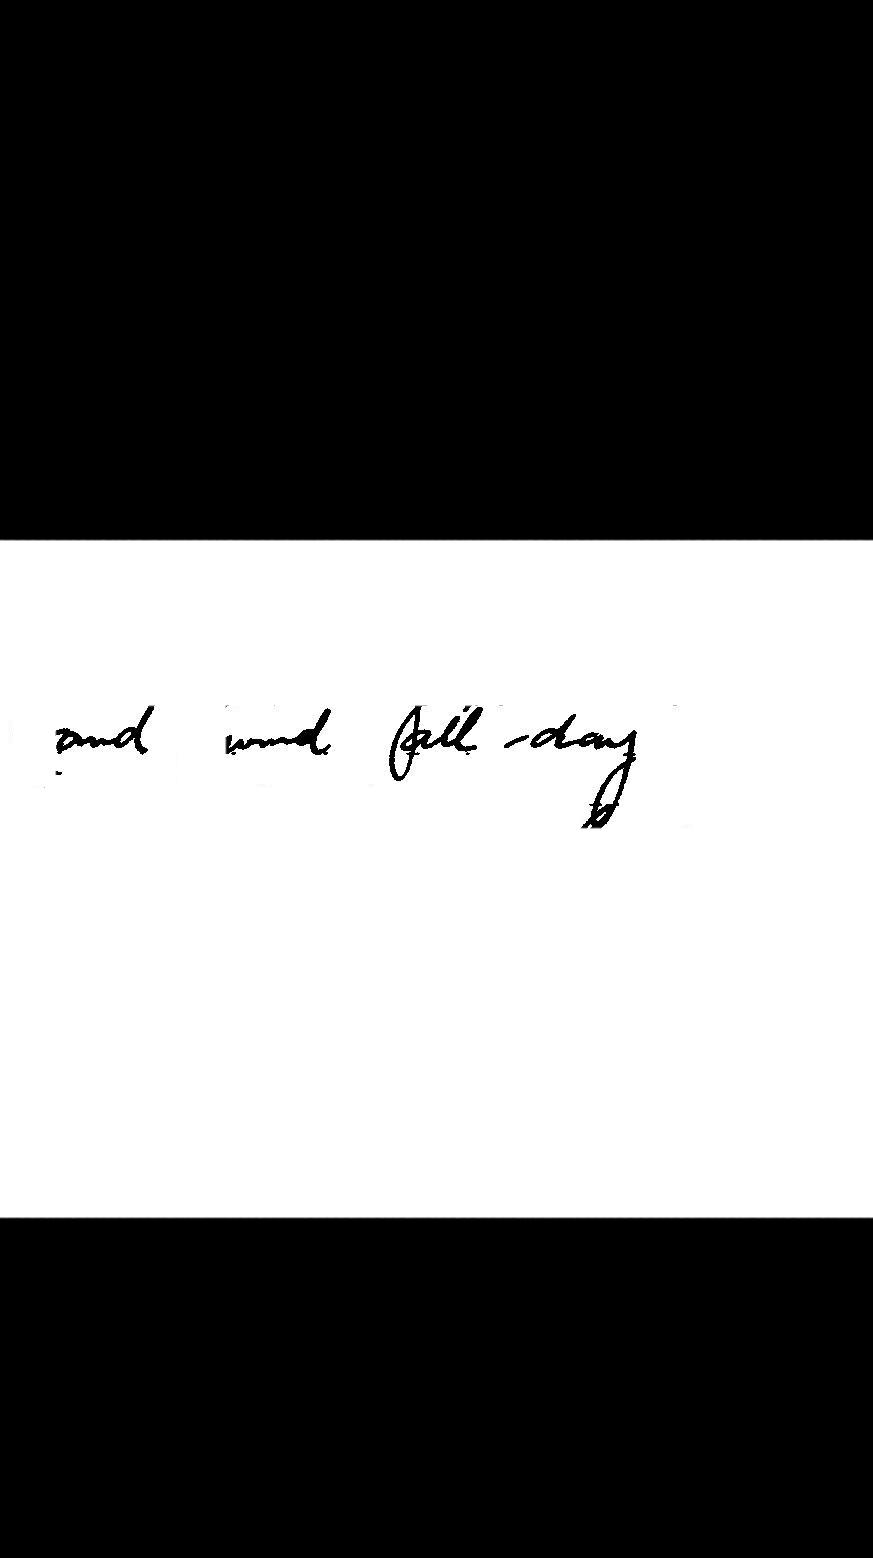 and wind fall -day